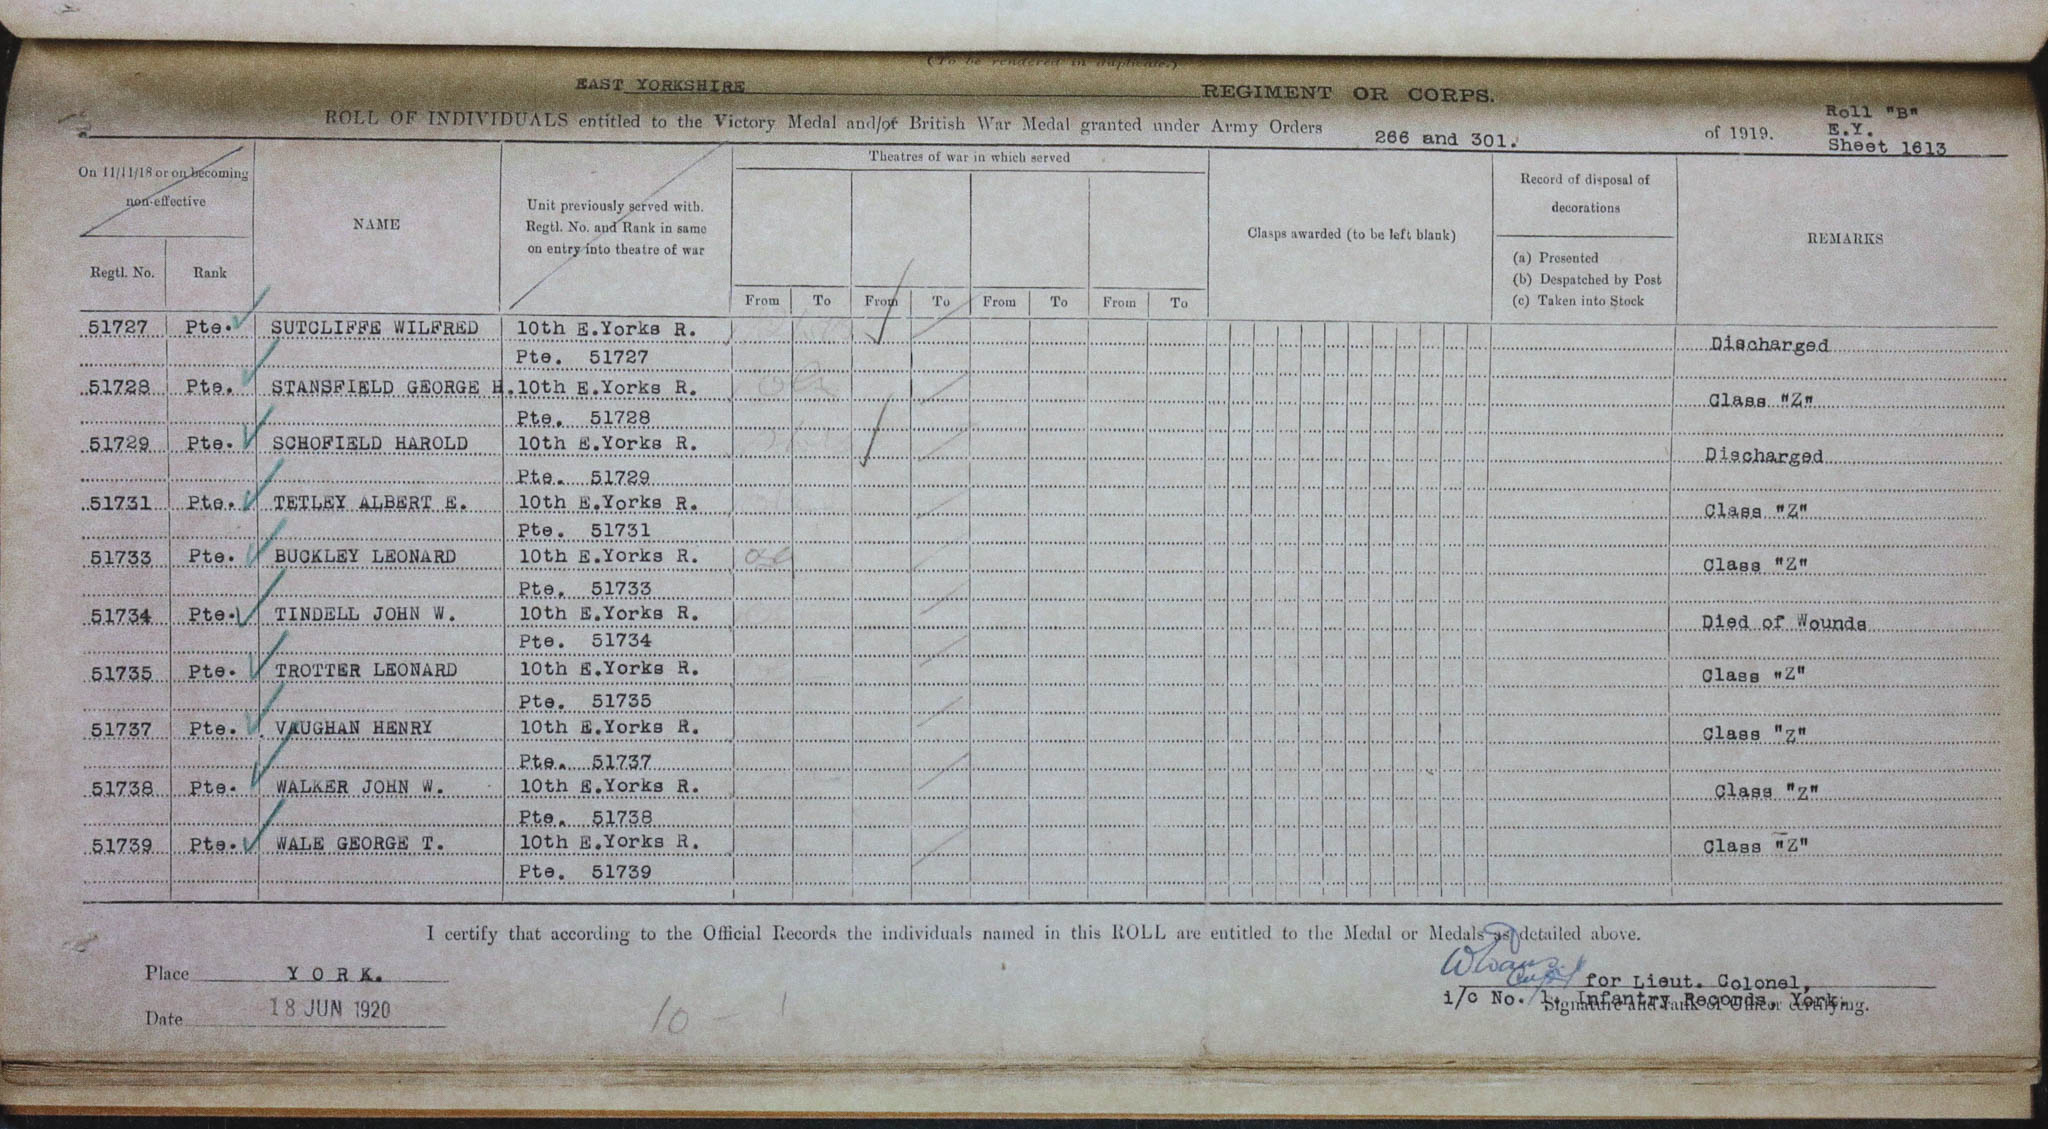 (To be rendered in duplicate.)
EAST YORKSHIRE REGIMENT OR CORPS.
ROLL OF INDIVIDUALS entitled to the Victory Medal and/or British War Medal granted under Army Orders 266 and 301. of 1919.
Roll "B"
E.Y.
Sheet 1613
On 11/11/18 or on becoming
non-effective
Regtl. No. Rank
NAME
Unit previously served with.
Regtl. No. and Rank in same
on entry into theatre of war
Theatres of war in which served
From To From To From To From To
Clasps awarded (to be left blank)
Record of disposal of
decorations
(a) Presented
(b) Despatched by Post
(c) Taken into Stock
REMARKS
51727 Pte. SUTCLIFFE WILFRED 10th E.Yorks R. Discharged
Pte. 51727
51728 Pte. STANSFIELD GEORGE H. 10th E.Yorks R. Class "Z"
Pte. 51728
51729 Pte. SCHOFIELD HAROLD 10th E.Yorks R. Discharged
Pte. 51729
51731 Pte. TETLEY ALBERT E. 10th E.Yorks R. Class "Z"
Pte. 51731
51733 Pte. BUCKLEY LEONARD 10th E.Yorks R. Class "Z"
Pte. 51733
51734 Pte. TINDELL JOHN W. 10th E.Yorks R. Died of Wounds
Pte. 51734
51735 Pte. TROTTER LEONARD 10th E.Yorks R. Class "Z"
Pte. 51735
51737 Pte. VAUGHAN HENRY 10th E.Yorks R. Class "Z"
Pte. 51737
51738 Pte. WALKER JOHN W. 10th E.Yorks R. Class "Z"
Pte. 51738
51739 Pte. WALE GEORGE T. 10th E.Yorks R. Class "Z"
Pte. 51739
I certify that according to the Official Records the individuals named in this ROLL are entitled to the Medal or Medals as detailed above.
Place YORK.
Date 18 JUN 1920
10 - 1
for Lieut. Colonel,
i/c No. 1. Infantry Records, York.
Signature and rank of Officer certifying.